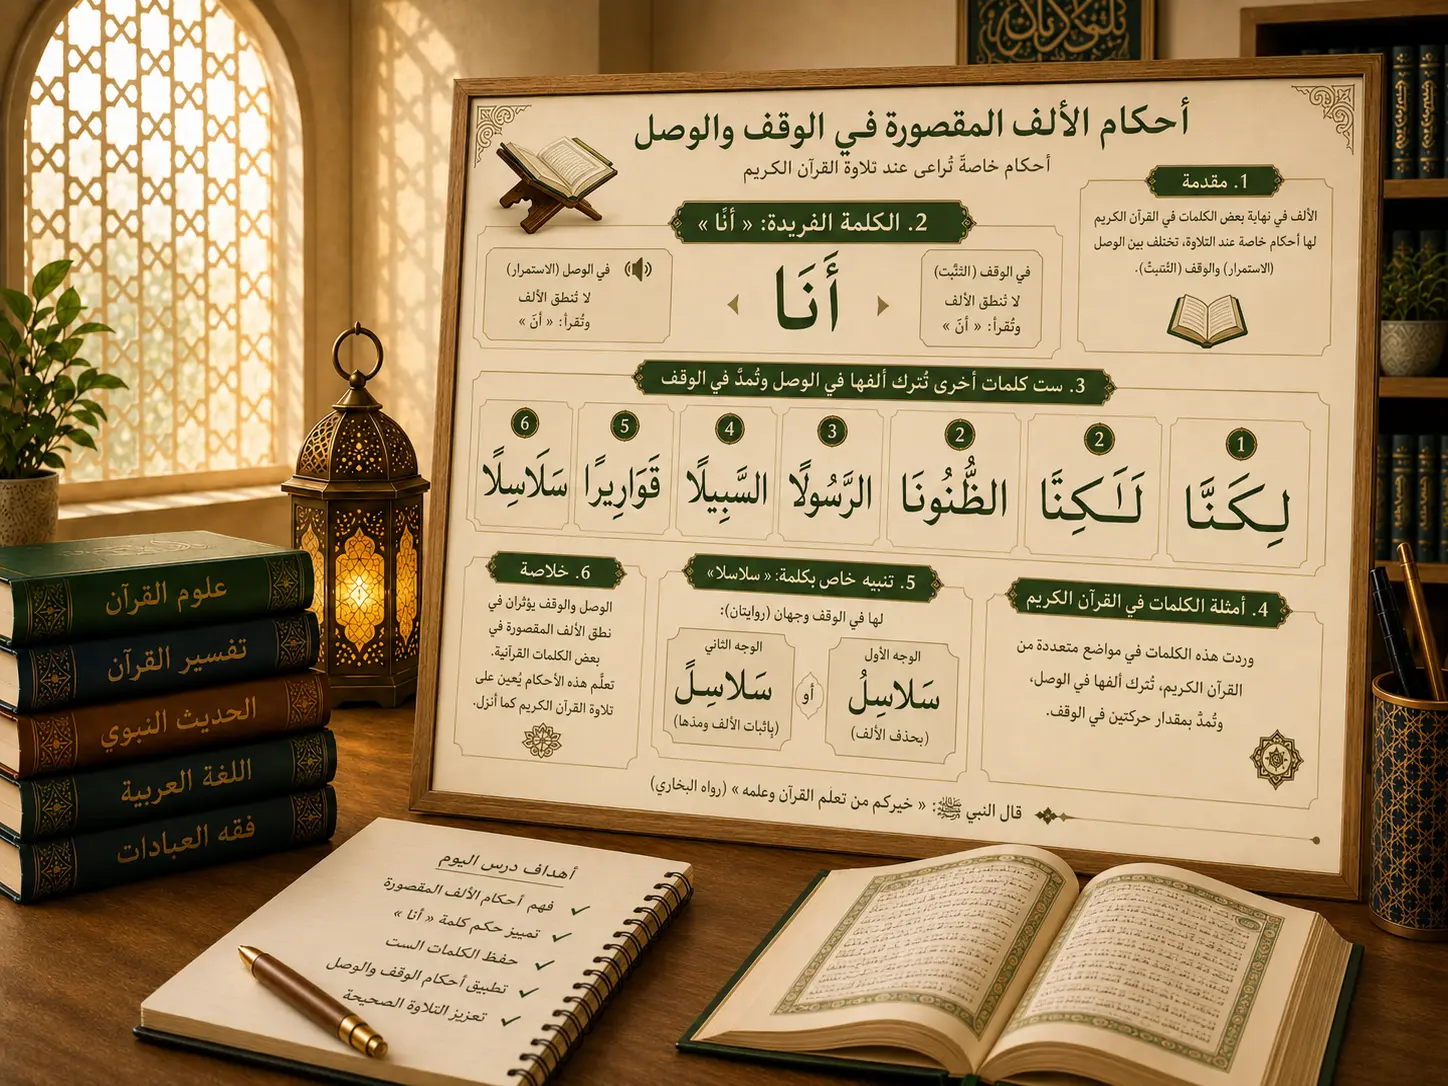 أحكام الألف المقصورة في الوقف والوصل
أحكام خاصةً تُراعى عند تلاوة القرآن الكريم
1. مقدمة
الألف في نهاية بعض الكلمات في القرآن الكريم
لها أحكام خاصة عند التلاوة، تختلف بين الوصل
(الاستمرار) والوقف (التثبت).
2. الكلمة الفريدة: « أنًا »
في الوقف (التثبت)
لا تُنطق الألف
وتُقرأ: « أنَ »
أَنَا
في الوصل (الاستمرار)
لا تُنطق الألف
وتُقرأ: « أنَ »
3. ست كلمات أخرى تُترك ألفها في الوصل وتُمدَّ في الوقف
1
لِكَنَّا
2
لَـٰكِنَّا
2
الظُّنُونَا
3
الرَّسُولَا
4
السَّبِيلَا
5
قَوَارِيرًا
6
سَلَاسِلَا
4. أمثلة الكلمات في القرآن الكريم
وردت هذه الكلمات في مواضع متعددة من
القرآن الكريم، تُترك ألفها في الوصل،
وتُمدَّ بمقدار حركتين في الوقف.
5. تنبيه خاص بكلمة: « سلاسلا»
لها في الوقف وجهان (روايتان):
الوجه الأول
سَلاسِلُ
(بحذف الألف)
أو
الوجه الثاني
سَلاسِلً
(بإثبات الألف ومذها)
6. خلاصة
الوصل والوقف يؤثران في
نطق الألف المقصورة في
بعض الكلمات القرآنية.
تعلَّم هذه الأحكام يُعين على
تلاوة القرآن الكريم كما أنزل.
قال النبي ﷺ: « خيركم من تعلم القرآن وعلمه » (رواه البخاري)
علوم القرآن
تفسير القرآن
الحديث النبوي
اللغة العربية
فقه العبادات
أهداف درس اليوم
فهم أحكام الألف المقصورة ✓
تمييز حكم كلمة « أنا » ✓
حفظ الكلمات الست ✓
تطبيق أحكام الوقف والوصل ✓
تعزيز التلاوة الصحيحة ✓